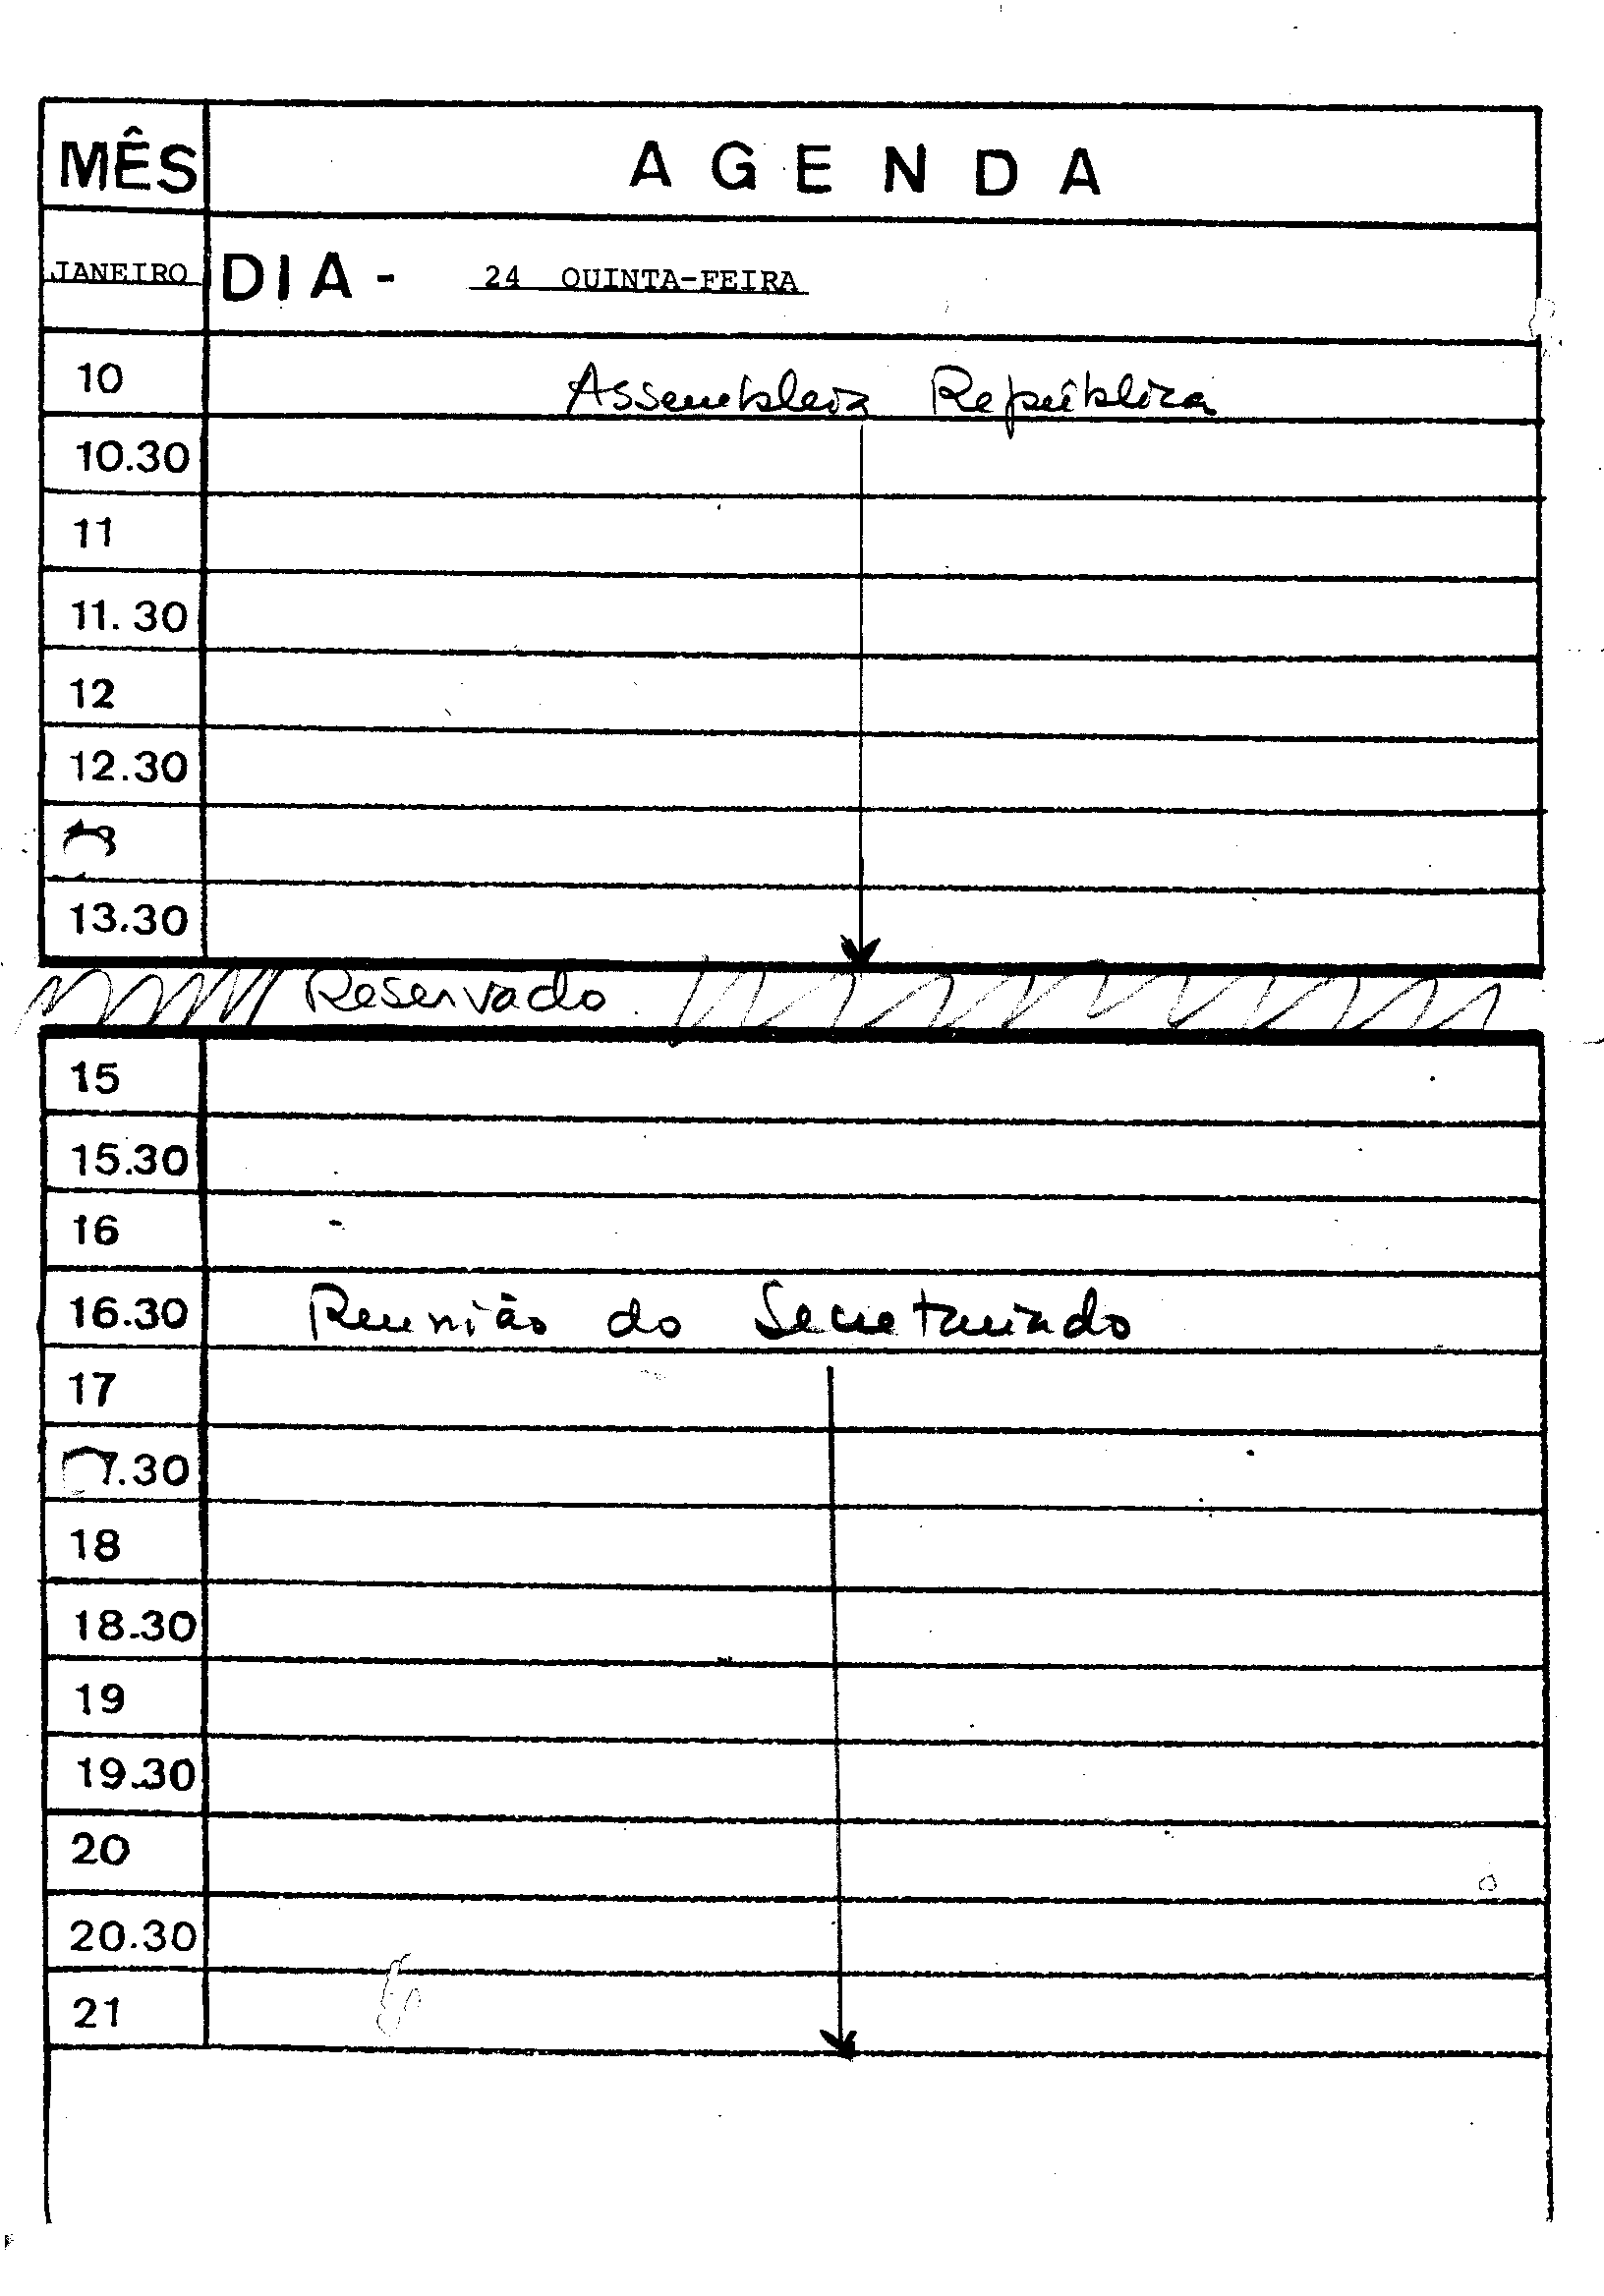 MÊS AGENDA
JANEIRO DIA - 24 QUINTA-FEIRA
10 Assembleia República
10.30
11
11.30
12
12.30
13
13.30
Reservado
15
15.30
16
16.30 Reunião do Secretariado
17
17.30
18
18.30
19
19.30
20
20.30
21